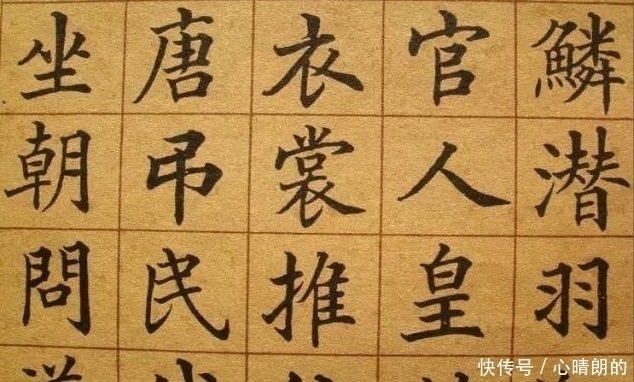 鱗潜羽
官人皇
衣裳推
唐弔民
坐朝問
快传号/心晴朗的